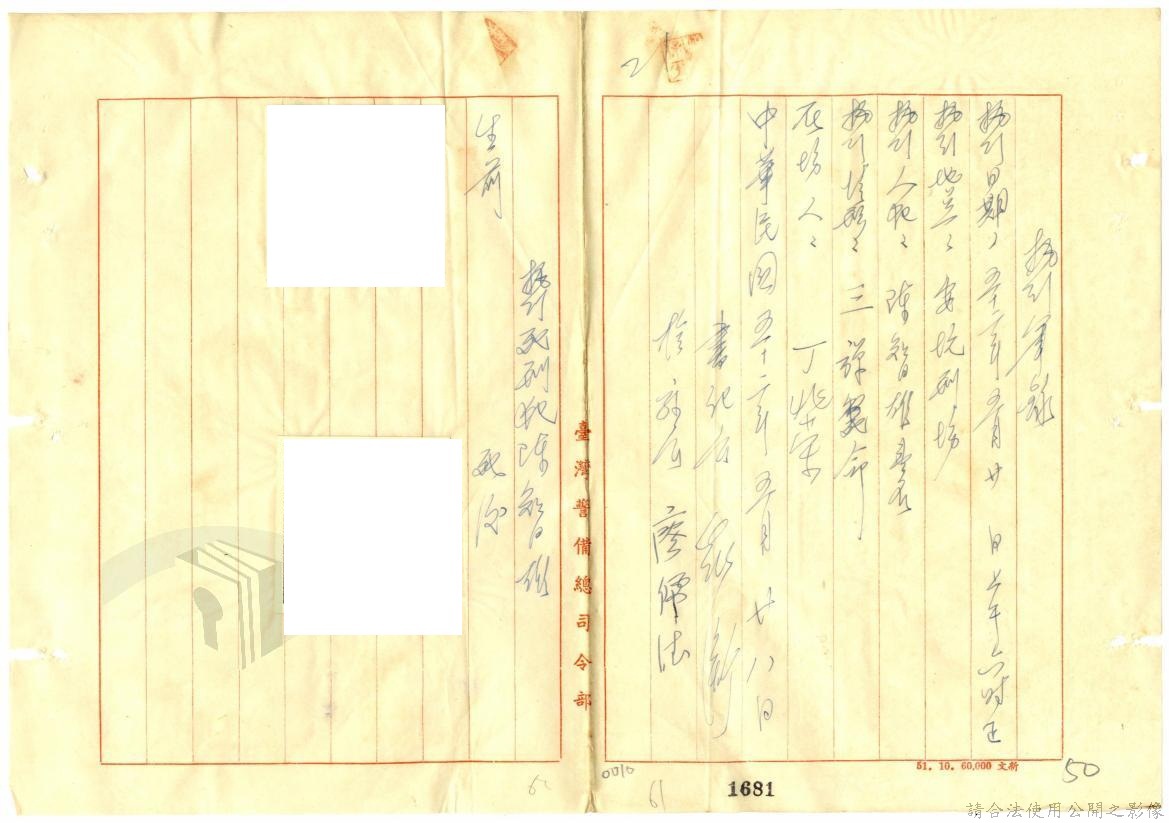 執行筆錄
執行日期：五十二年五月廿 日上午六時正
執行地點：安坑刑場
執行人犯：陳智雄壹名
執行情形：三彈斃命
在場人：丁
中華民國五十二年五月廿八日
書記官
檢察官
執行死刑犯陳智雄
生前
死後
臺灣警備總司令部
51. 10. 60,000 文新
50
21
0010
61
1681
請合法使用公開之影像